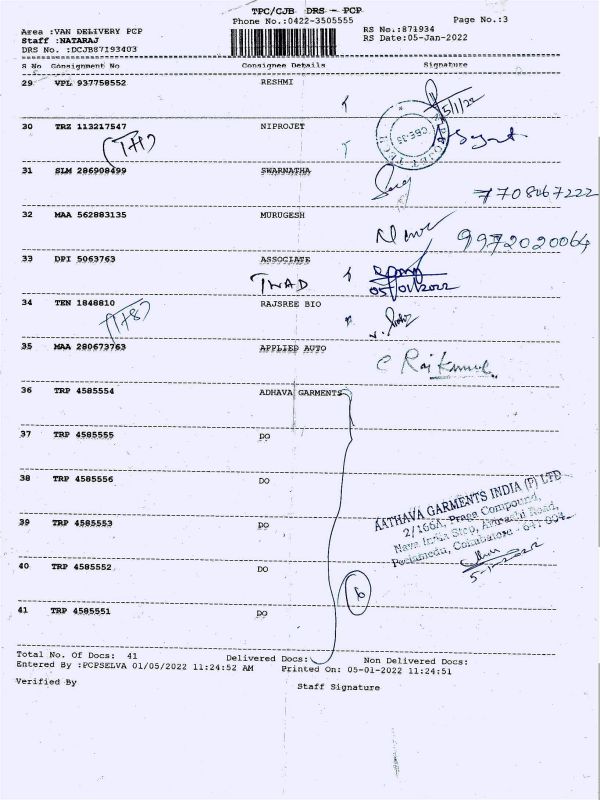 TPC/CJB DRS - PCP
Phone No.:0422-3505555 Page No.:3
Area :VAN DELIVERY PCP RS No.:871934
Staff :NATARAJ RS Date:05-Jan-2022
DRS No. :DCJB87193403
S No Consignment No Consignee Details Signature
29 VPL 937758552 RESHMI
5/1/22
30 TRZ 113217547 NIPROJET
31 SLM 286908499 SWARNATHA
7708067222
32 MAA 562883135 MURUGESH
9972020064
33 DPI 5063763 ASSOCIATE
TWAD 05/01/2022
34 TEN 1848810 RAJSREE BIO
35 MAA 280673763 APPLIED AUTO
C Raj Kumar
36 TRP 4585554 ADHAVA GARMENTS
37 TRP 4585555 DO
38 TRP 4585556 DO
AATHAVA GARMENTS INDIA (P) LTD
2/166A, Praga Compound,
39 TRP 4585553 DO
Nava India Stop, Avinashi Road,
Peelamedu, Coimbatore - 641 004.
40 TRP 4585552 DO
5-1-2022
6
41 TRP 4585551 DO
Total No. Of Docs: 41 Delivered Docs: Non Delivered Docs:
Entered By :PCPSELVA 01/05/2022 11:24:52 AM Printed On: 05-01-2022 11:24:51
Verified By Staff Signature